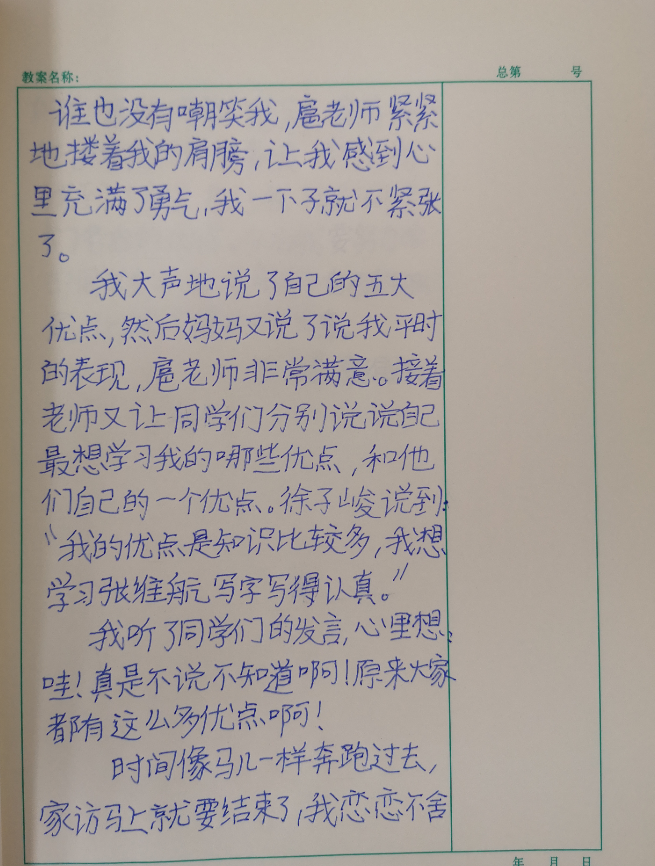 教案名称：
总第 号
谁也没有嘲笑我,扈老师紧紧
地搂着我的肩膀,让我感到心
里充满了勇气,我一下子就不紧张
了。
我大声地说了自己的五大
优点,然后妈妈又说了说我平时
的表现,扈老师非常满意。接着
老师又让同学们分别说说自己
最想学习我的哪些优点,和他
们自己的一个优点。徐子峻说到:
"我的优点是知识比较多,我想
学习张维航写字写得认真。"
我听了同学们的发言,心里想:
哇!真是不说不知道啊!原来大家
都有这么多优点啊!
时间像马儿一样奔跑过去,
家访马上就要结束了,我恋恋不舍
年 月 日